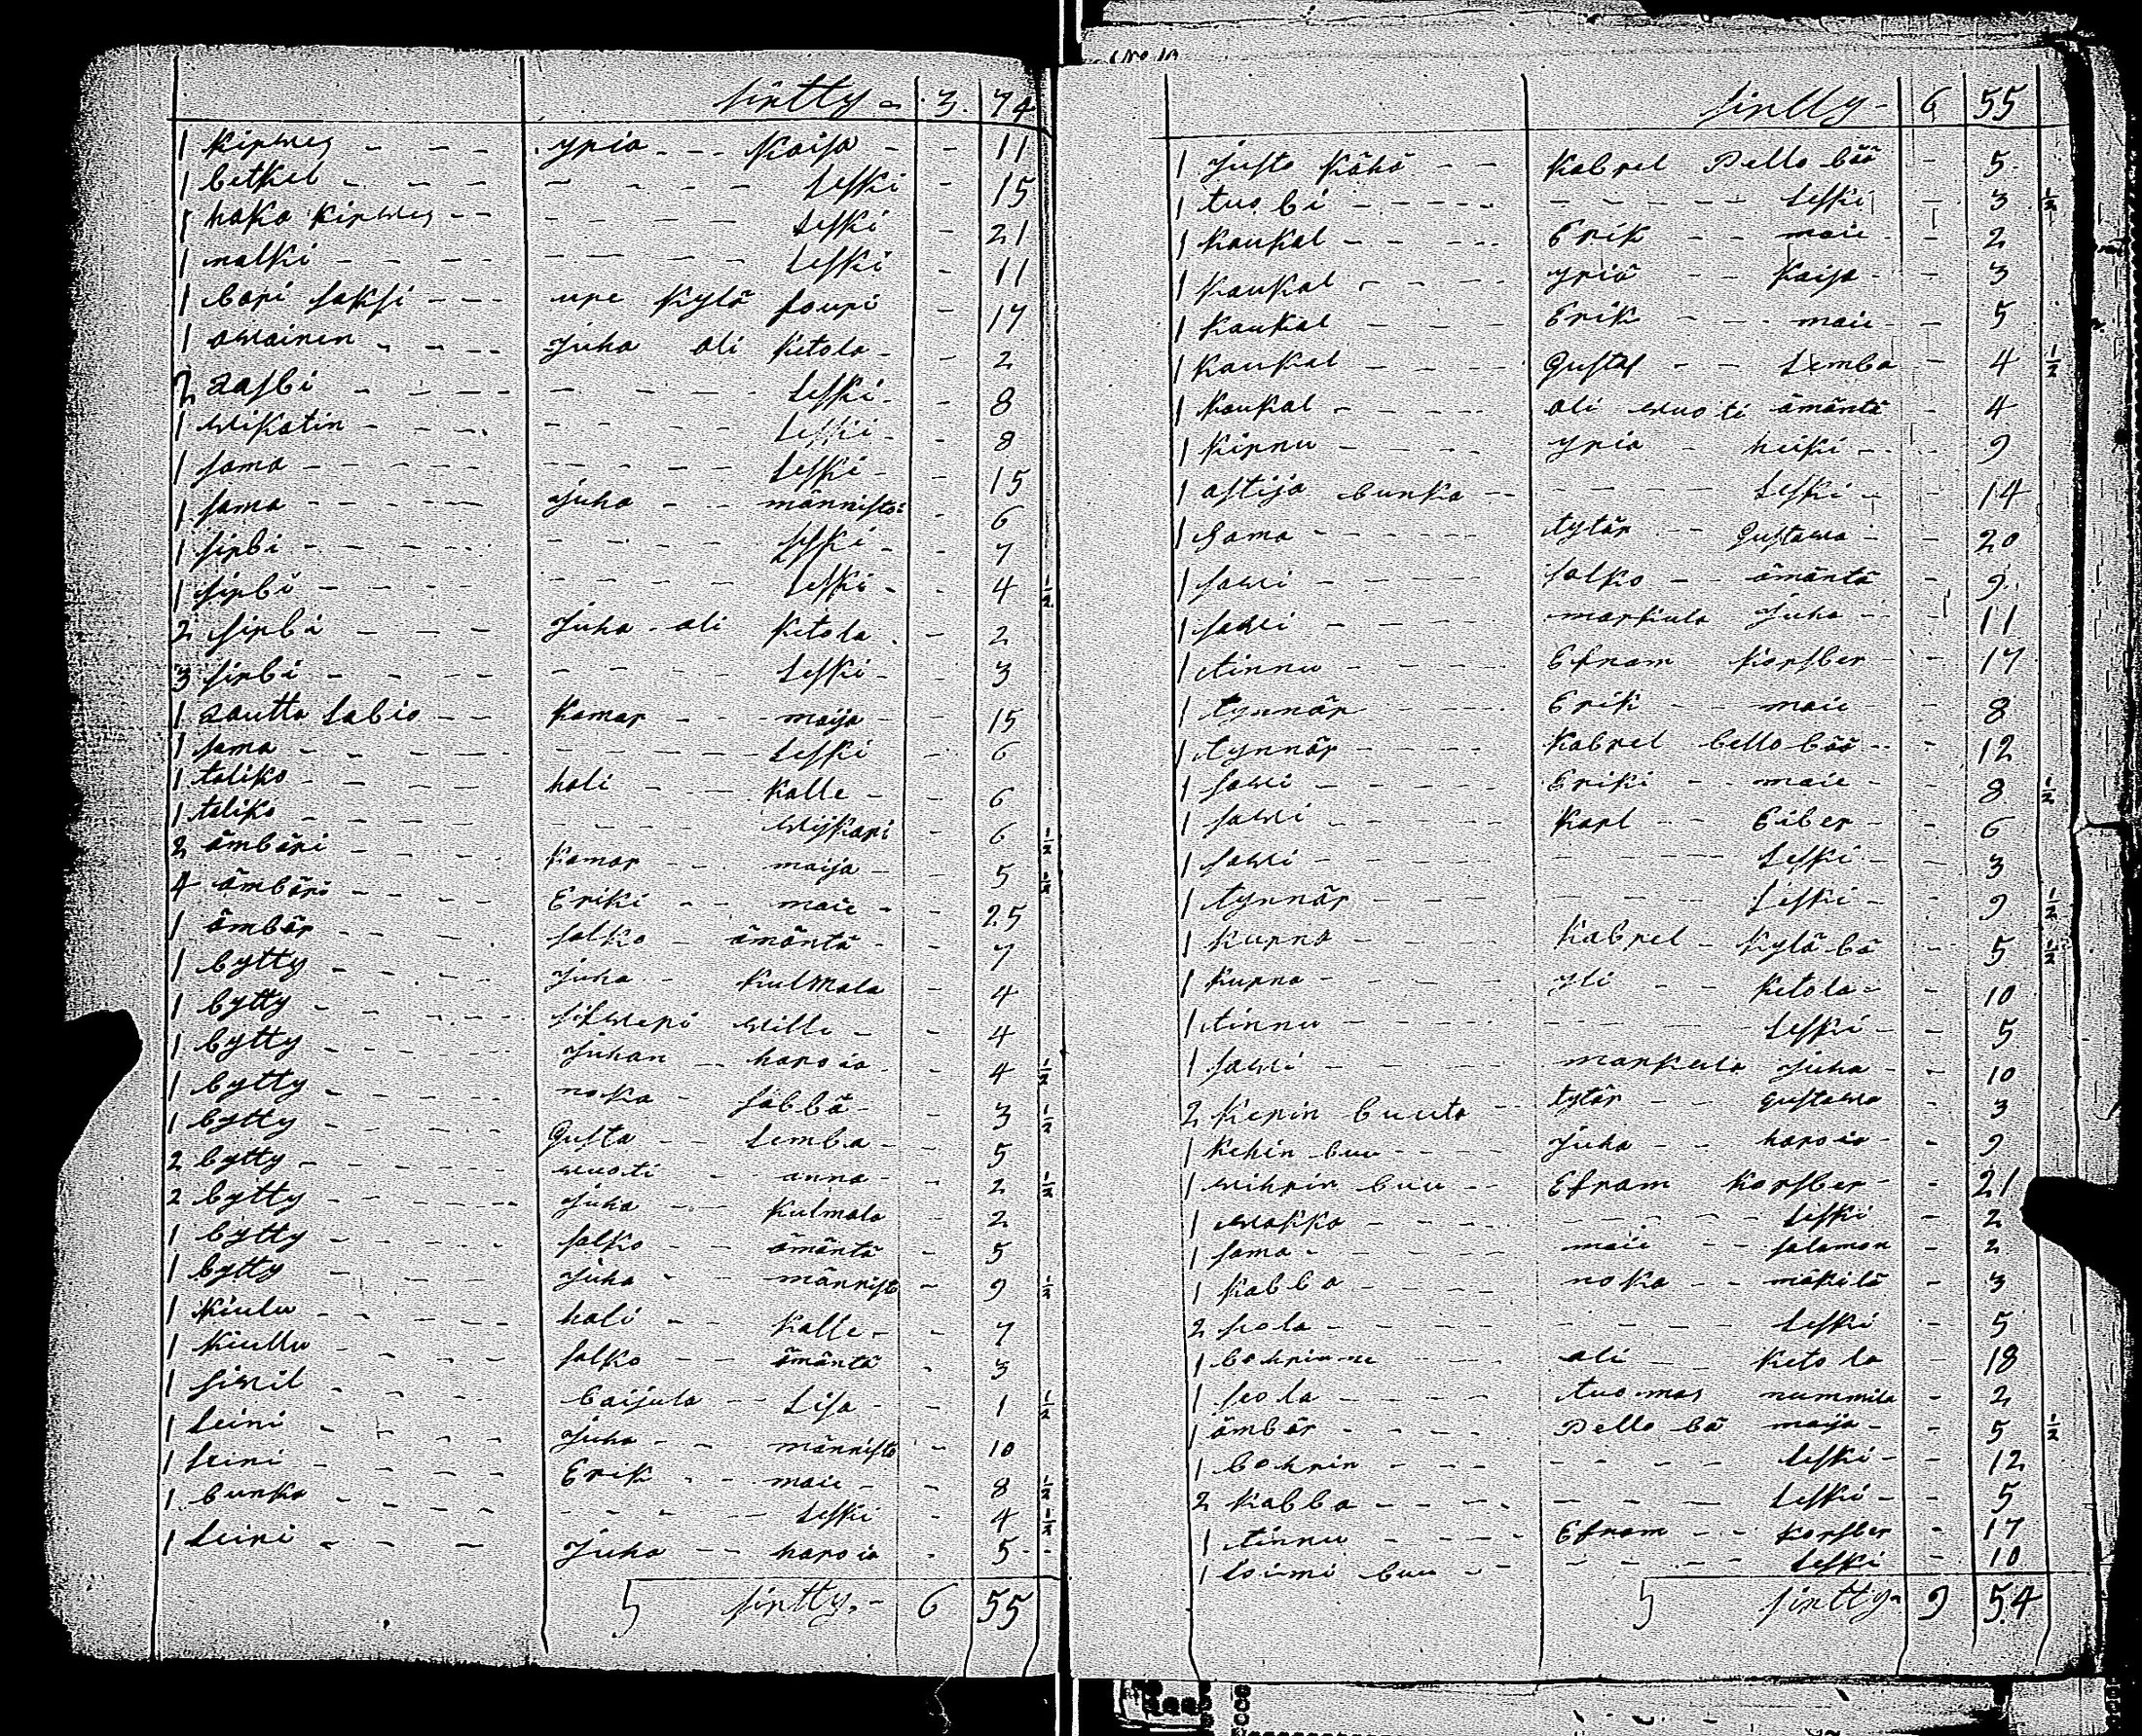 siirtty - 3. 74
1 kirwes - - - yria - - - Kaisa - - 11
1 betkel - - - - - - - Leski - 15
1 hako kirwes - - - - - - Leski - 21
1 nalki - - - - - - - - Leski - 11
1 bori saksi - - - ure kylä souri - 17
1 awainen - - - - Juha ali kitola - - 2
2 Rasbi - - - - - - Leski - - 8
1 wikatin - - - - - - - - Leski - - 8
1 sama - - - - - - - - - - Leski - - 15
1 sama - - - - - Juha - - männistö - 6
1 sirbi - - - - - - - - - Leski - - 7
1 sirbi - - - - - - - - - Leski - - 4 ½
2 sirbi - - - Juha - ali kitola - - 2
3 sirbi - - - - - - - - Leski - - 3
1 Rautta Labio - - Kamar - - - maija - - 15
1 sama - - - - - - - - - - Leski - 6
1 taliko - - - - hali - - - Kalle - - 6
1 taliko - - - - - - - - wijkari - 6 ½
2 ämbäri - - - - Kamar - - maija - - 5 ½
4 ämbäri - - - - Eriki - - maie - - 25
1 ämbär - - - - salko - ämäntä - - 7
1 bytty - - - - Juha - Kulmala - 4
1 bytty - - - - silweri wille - - 4
1 bytty - - - - Juhan - - haroia - - 4 ½
1 bytty - - - - noka - säbbä - - 3 ½
1 bytty - - - - Gusta - - Lemba - - 5
2 bytty - - - - wuoti - - anna - - 2 ½
2 bytty - - - - Juha - - Kulmala - 2
1 bytty - - - - salko - - ämäntä - 5
1 bytty - - - - Juha - - männistö - 9 ½
1 kiulu - - - - hali - - Kalle - - 7
1 kiullu - - - - salko - - ämäntä - 3
1 siwil - - - - baijula - - Lisa - - 1 ½
1 Leini - - - - Juha - - männistö - 10
1 Leini - - - - Erik - - maie - - 8 ½
1 bunka - - - - - - - - Leski - 4 ½
1 Leini - - - Juha - - haroia - 5 -
siirtty. - 6 55
siirtty - 6 55
1 Justo kähä - - Kabrel Pello bää - 5
1 tuobi - - - - - - - - - - Leski - 3 ½
1 Kaukal - - - - Erik - - maie - - 2
1 Kaukal - - - - yriä - - Kaisa - - 3
1 Kaukal - - - Erik - - - maie - - 5
1 Kaukal - - - - Gustaf - - Lemba - 4 ½
1 Kaukal - - - - ali wuoti ämäntä - 4
1 Kirnu - - - - yria - heiki - - - 9
1 astija bunka - - - - - - Leski - - 14
1 Sama - - - - - - tytär - - Gustawa - - 20
1 sawi - - - - salko - - ämäntä - 9
1 sawi - - - - markula Juha - - 11
1 tinnu - - - - Efram Korsber - - 17
1 tynnär - - - - Erik - - maie - - 8
1 tynnär - - - - Kabrel bello bää - - 12
1 sawi - - - - - Eriki - - maie - - 8 ½
1 sawi - - - - - Karl - - Eiber - - 6
1 sawi - - - - - - - - - Leski - - 3
1 tynnär - - - - - - - - Leski - - 9 ½
1 kurna - - - - Kabrel - Kylä bä - 5 ½
1 kurna - - - - yli - - Kitola - - 10
1 tinnu - - - - - - - - Leski - - 5
1 sawi - - - - markula Juha - - 10
2 kerin buuta - - tytär - - gustawa - 3
1 kehin buu - - - - Juha - - haroia - - 9
1 wihrin buu - - Efram Korsber - - 21
1 wakka - - - - - - - - - Leski - 2
1 sama - - - - - maie - - salamon - 2
1 kabba - - - - noka - - mäkilä - 3
2 seola - - - - - - - - - Leski - 5
1 - - - ali - - Kitola - 18
1 seola - - - - tuomas nummila - 2
1 ämbär - - - - Pello bä maija - - 5 ½
1 bohrin - - - - - - - - Leski - - 12
2 kabba - - - - - - - - Leski - - 5
1 tinnu - - - - Efram - - Korsber - 17
1 loimi buu - - - - - - - Leski - 10
siirtty - 9 54